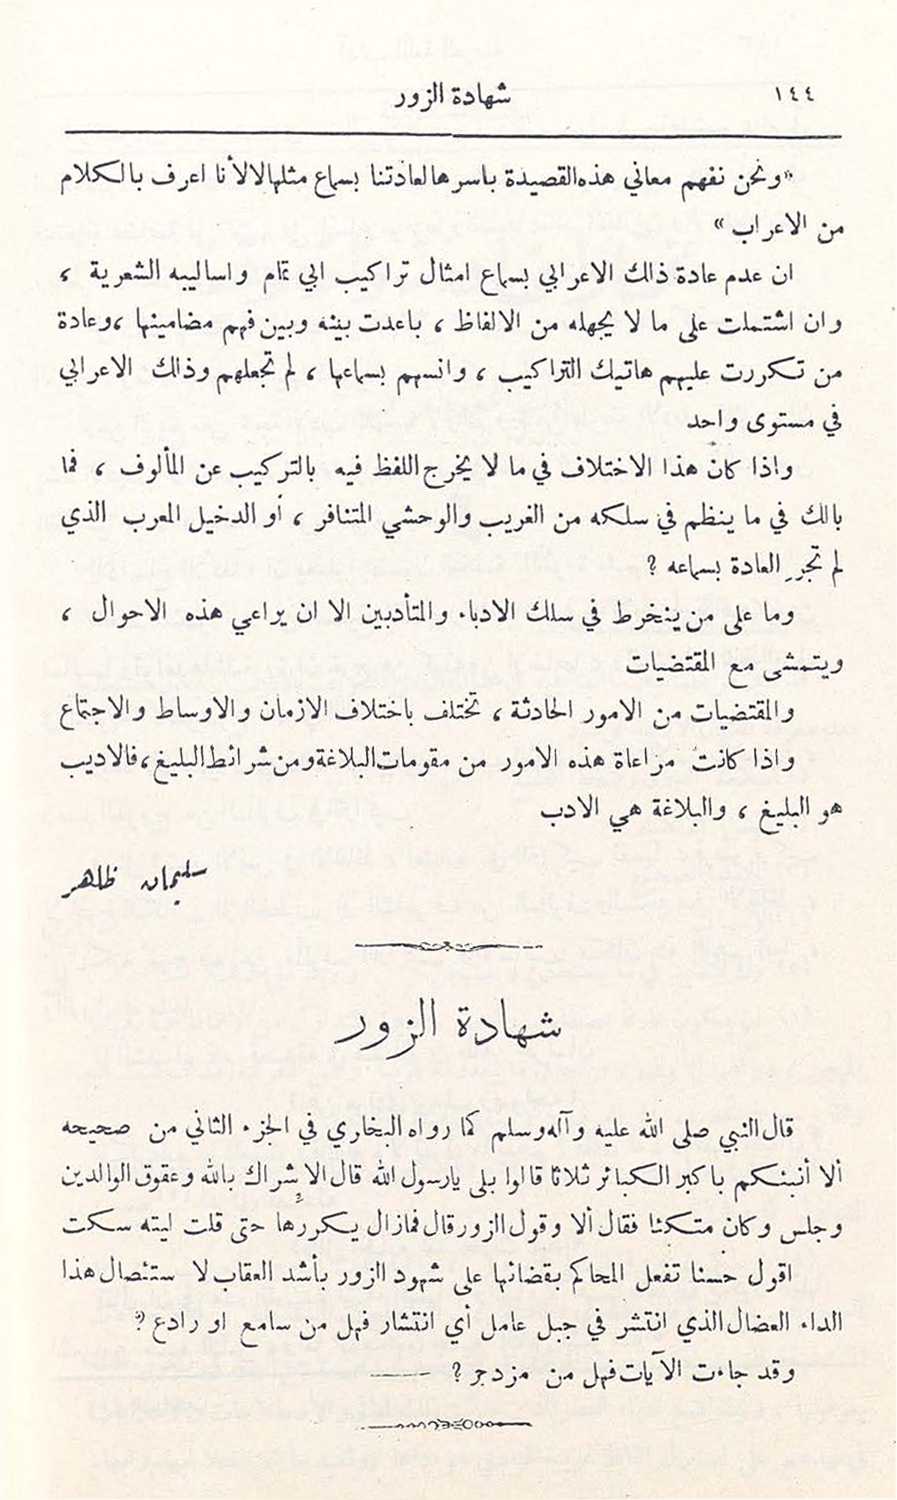 ١٤٤ شهادة الزور
«ونحن نفهم معاني هذه القصيدة باسرها لعادتنا بسماع مثلها لا لأنا اعرف بالكلام
من الاعراب»
ان عدم عادة ذلك الاعرابي بسماع امثال تراكيب ابي تمام واساليبه الشعرية ،
وان اشتملت على ما لا يجهله من الالفاظ ، باعدت بينه وبين فهم مضامينها ، وعادة
من تكررت عليهم هاتيك التراكيب ، وانسهم بسماعها ، لم تجعلهم وذلك الاعرابي
في مستوى واحد
واذا كان هذا الاختلاف في ما لا يخرج اللفظ فيه بالتركيب عن المألوف ، فما
بالك في ما ينظم في سلكه من الغريب والوحشي المتنافر ، أو الدخيل المعرب الذي
لم تجرِ العادة بسماعه ؟
وما على من ينخرط في سلك الادباء والمتأدبين الا ان يراعي هذه الاحوال ،
ويتمشى مع المقتضيات
والمقتضيات من الامور الحادثة ، تختلف باختلاف الازمان والاوساط والاجتماع
واذا كانت مراعاة هذه الامور من مقومات البلاغة ومن شرائط البليغ ، فالاديب
هو البليغ ، والبلاغة هي الادب
سليمان ظاهر
شهادة الزور
قال النبي صلى الله عليه وآله وسلم كما رواه البخاري في الجزء الثاني من صحيحه
ألا أنبئكم باكبر الكبائر ثلاثا قالوا بلى يارسول الله قال الإشراك بالله وعقوق الوالدين
وجلس وكان متكئا فقال ألا وقول الزور قال فمازال يكررها حتى قلت ليته سكت
اقول حسنا تفعل المحاكم بقضائها على شهود الزور بأشد العقاب لا ستئصال هذا
الداء العضال الذي انتشر في جبل عامل أي انتشار فهل من سامع او رادع ؟
وقد جاءت الآيات فهل من مزدجر ؟